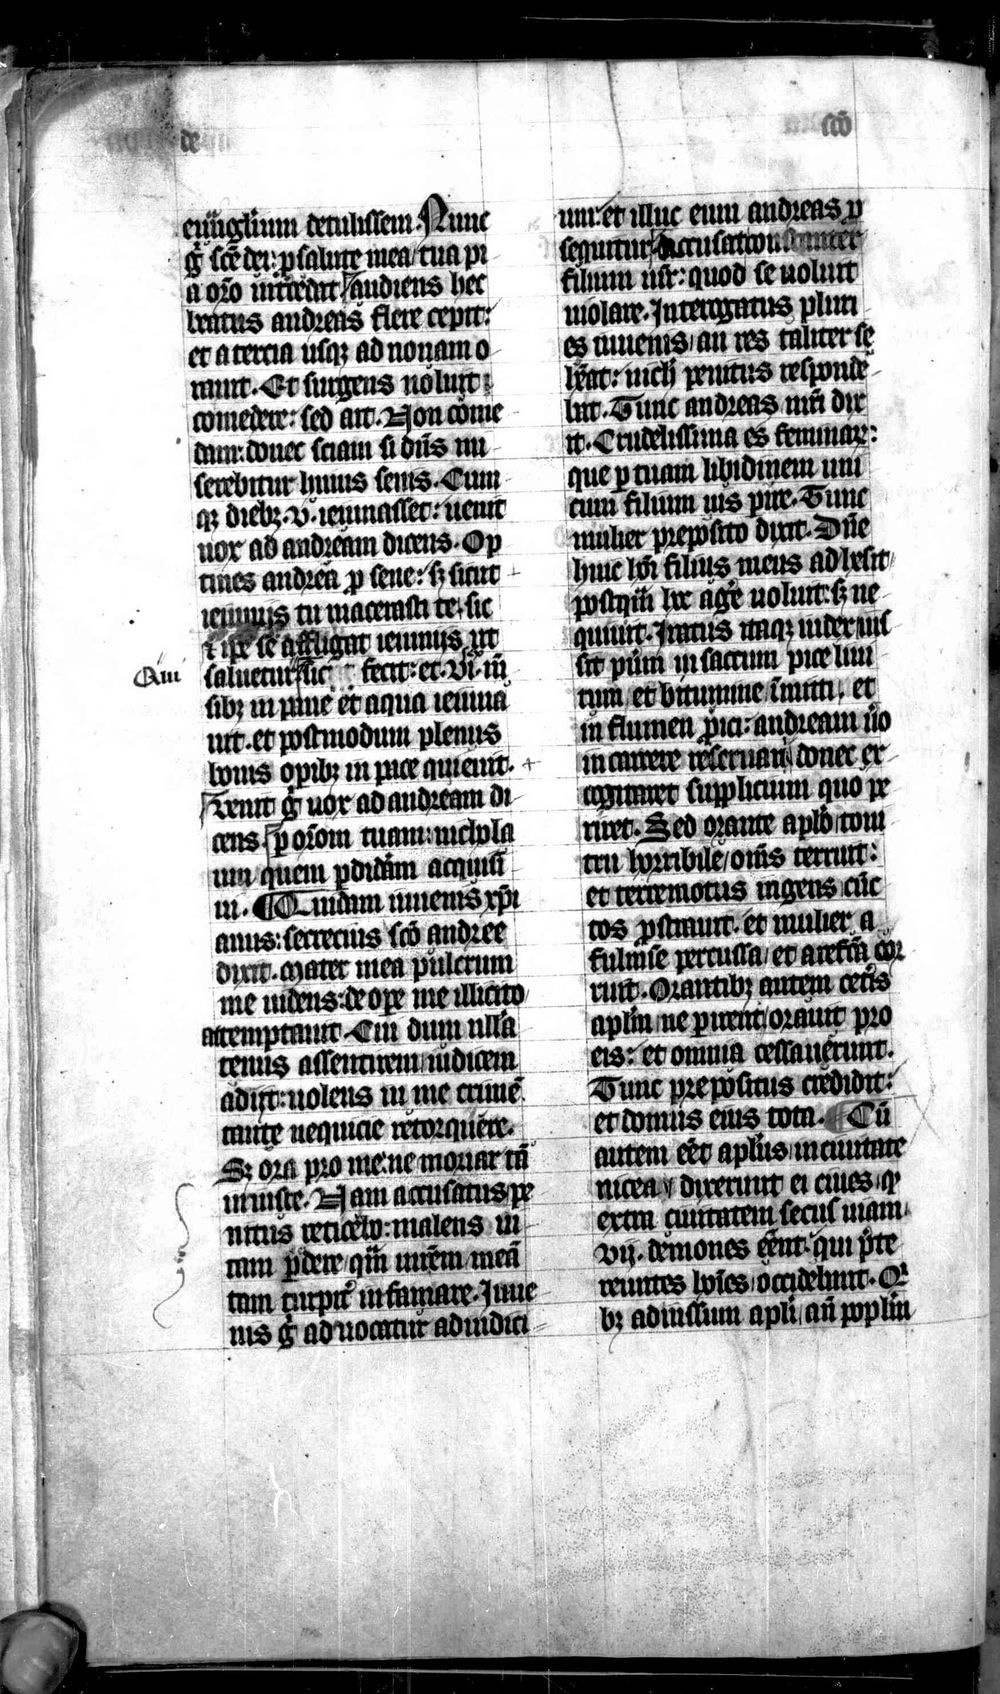 de
scō
euūglium detulissem. Nunc
g̃ scē dei: p salute mea / tua pi
a orō int̄cedat / audiens hec
beatus andreas flere cepit:
et a tercia usqꝫ ad nonam o
rauit. Et surgens noluit
comedere: sed ait. Non come
dam: donec sciam si dn̄s mi
serebitur huius senis. Cum
qꝫ diebꝫ .v. ieiunasset: uenit
uox ad andream dicens. Op
tines andrea p sene: sꝫ sicut
ieiunijs tu macerasti te: sic
⁊ ip̄e se affligat ieiunijs ut
Qui
saluetur / sic fecit: et .vi. m̄
sibꝫ in pane et aqua ieiuna
uit. et postmodum plenus
bonis opibꝫ in pace quieuit. +
Uenit g̃ uox ad andream di
cens / p or̄om tuam: nichola
um quem pdidām acquisi
ui. ¶ Quidam iuuenis xp̄i
anus: secretius scō andree
dixit. Mater mea pulcrum
me uidens: de ope me illicito
attemptauit. Cui dum nlla
tenus assentirem / iudicem
adijt: uolens in me crimē
tante nequicie retorquēre.
Sꝫ ora pro me: ne moriar tā
iniuste. Nam accusatus / pe
nitus reticebo: malens ui
tam pdere / qm̄ mr̄em meā
tam turpit̄ infamare. Iuue
nis g̃ aduocatur ad iudici
um: et illuc eum andreas p
sequitur / accusat constanter
filium mr̄: quod se uoluit
uiolare. Interrogatus pluri
es iuuenis / an res taliter se
hēat: nich̄ penitus responde
bat. Tunc andreas mr̄i dix
it. Crudelissima es feminaꝝ:
que p tuam libidinem uni
cum filium uis pire. Tunc
mulier preposito dixit. Dn̄e
huic hōi filius meus adhesit
postqm̄ hoc agēe uoluit: sꝫ ne
quiuit. Iratus itaqꝫ iudex ius
sit pūm in saccum pice lini
tum / et bitumine īmitti, et
in flumen proici: andream ūo
in carcere reseruari / donec ex
cogitaret supplicium quo pe
riret. Sed orante aplō / toni
tru horribile / omīs terruit:
et terremotus ingens cūc
tos prostrauit. et mulier a
fulmīe percussa / et arefc̄a cor
ruit. Orantibꝫ autem cet̄is
aplm̄ / ne pirent / orauit pro
eis: et omnia cessauerunt.
Tunc prepositus credidit:
et domus eius tota. ¶ Cū
autem eēt aplus in ciuitate
nicea / dixerunt ei ciues / qͥ
extra ciuitatem secus uiam
vij. demones eēnt: qui p̄te
reuntes hoīes / occidebant. Qͥ
bꝫ ad iussum apli / an̄ poplm̄